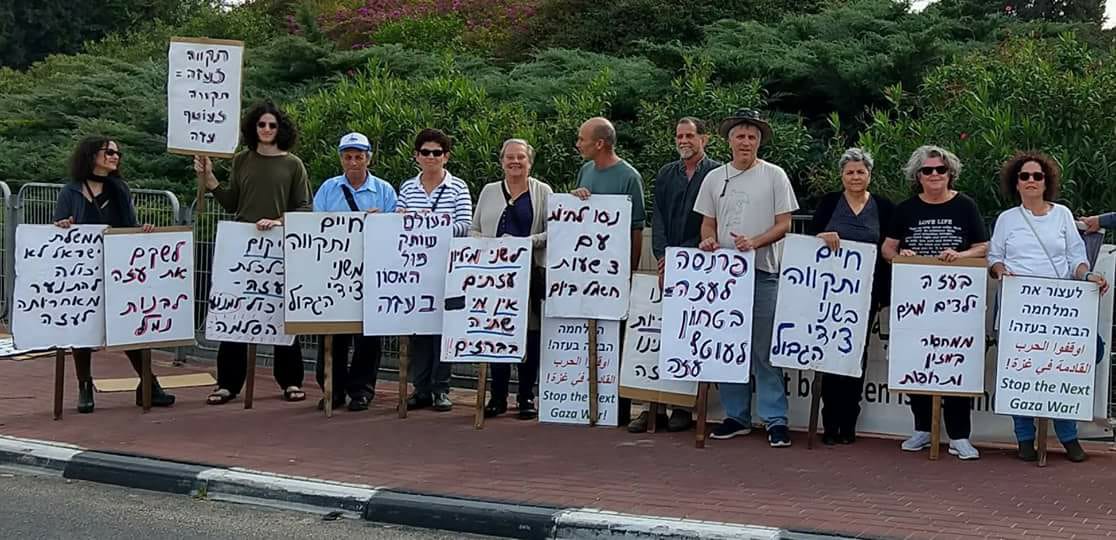 תקווה
לעזה =
תקווה
לעוטף
עזה
ממשלת
ישראל לא
יכולה
להתנער
מאחריותה
לעזה
לשקם
את עזה
לבנות
נמל
שיקום
כלכלת
עזה-
יכול למנוע
הסלמה
חיים
ותקווה
משני
צידי
הגבול
העולם
שותק
מול
האסון
בעזה
לשני מיליון
עזתים
אין מי
שתיה
בברזים!!
נסו לחיות
עם
4 שעות
חשמל ביום
המלחמה
הבאה בעזה!
اوقفوا الحرب
القادمة في غزة!
Stop the Next
Gaza War!
פרנסה
לעזה=
בטחון
לעוטף
עזה
חיים
ותקווה
בשני
צידי
הגבול
LOVE LIFE
בעזה
ילדים מתים
ממחסור
במזון
ותרופות
לעצור את
המלחמה
הבאה בעזה!
اوقفوا الحرب
القادمة في غزة!
Stop the Next
Gaza War!